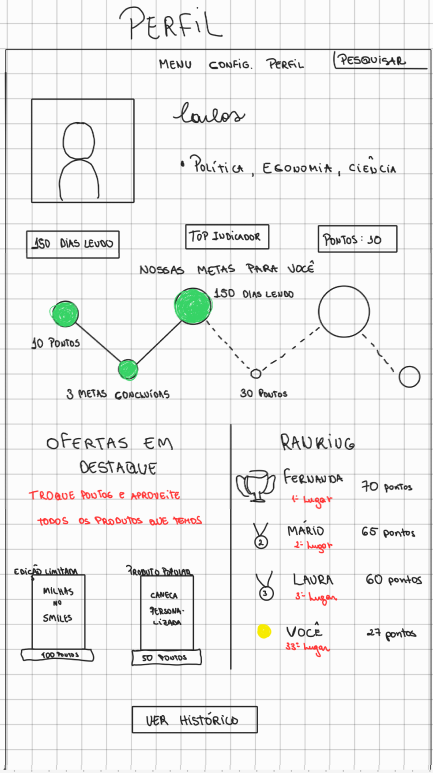 PERFIL
MENU CONFIG. PERFIL PESQUISAR
Carlos
• POLÍTICA, ECONOMIA, CIÊNCIA
150 DIAS LENDO
TOP INDICADOR
PONTOS: 10
NOSSAS METAS PARA VOCÊ
150 DIAS LENDO
10 PONTOS
3 METAS CONCLUÍDAS
30 PONTOS
OFERTAS EM
DESTAQUE
TROQUE PONTOS E APROVEITE
TODOS OS PRODUTOS QUE TEMOS
EDIÇÃO LIMITADA
MILHAS
NO
SMILES
100 PONTOS
PRODUTO POPULAR
CANECA
PERSONA-
LIZADA
50 PONTOS
RANKING
FERNANDA 70 pontos
1º Lugar
2
MÁRIO 65 pontos
2º Lugar
3
LAURA 60 pontos
3º Lugar
VOCÊ 27 pontos
33º Lugar
VER HISTÓRICO